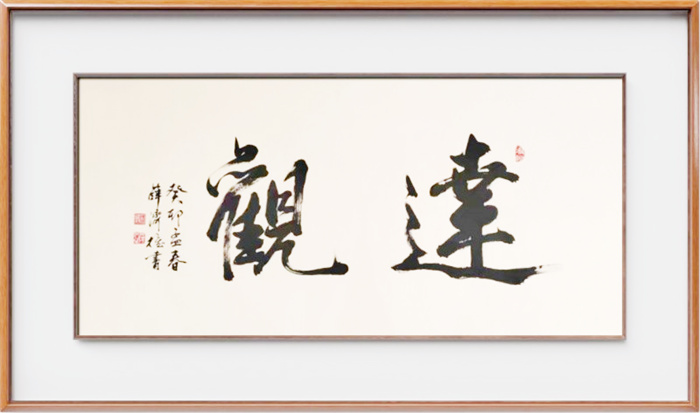 達觀
癸卯孟春
薛濟書